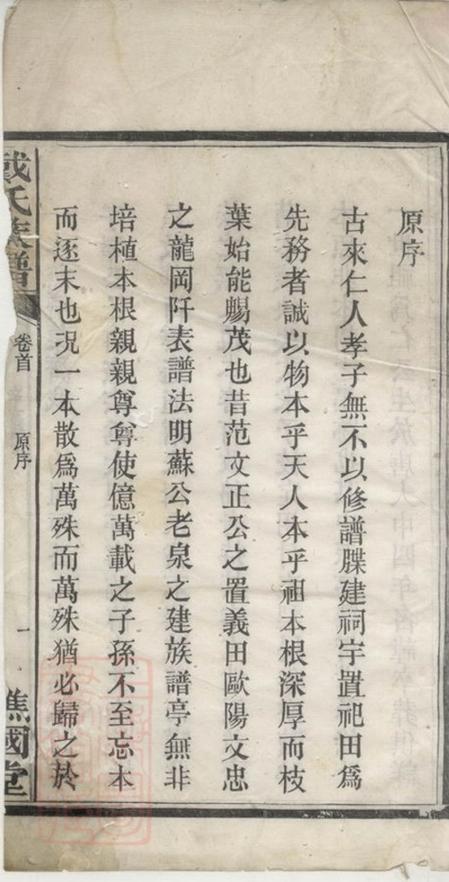 原序
古來仁人孝子無不以修譜牒建祠宇置祀田爲
先務者誠以物本乎天人本乎祖本根深厚而枝
葉始能暢茂也昔范文正公之置義田歐陽文忠
之龍岡阡表譜法明蘇公老泉之建族譜亭無非
培植本根親親尊尊使億萬載之子孫不至忘本
而逐末也况一本散爲萬殊而萬殊猶必歸之於
戴氏族譜
卷首
原序
一
譙國堂